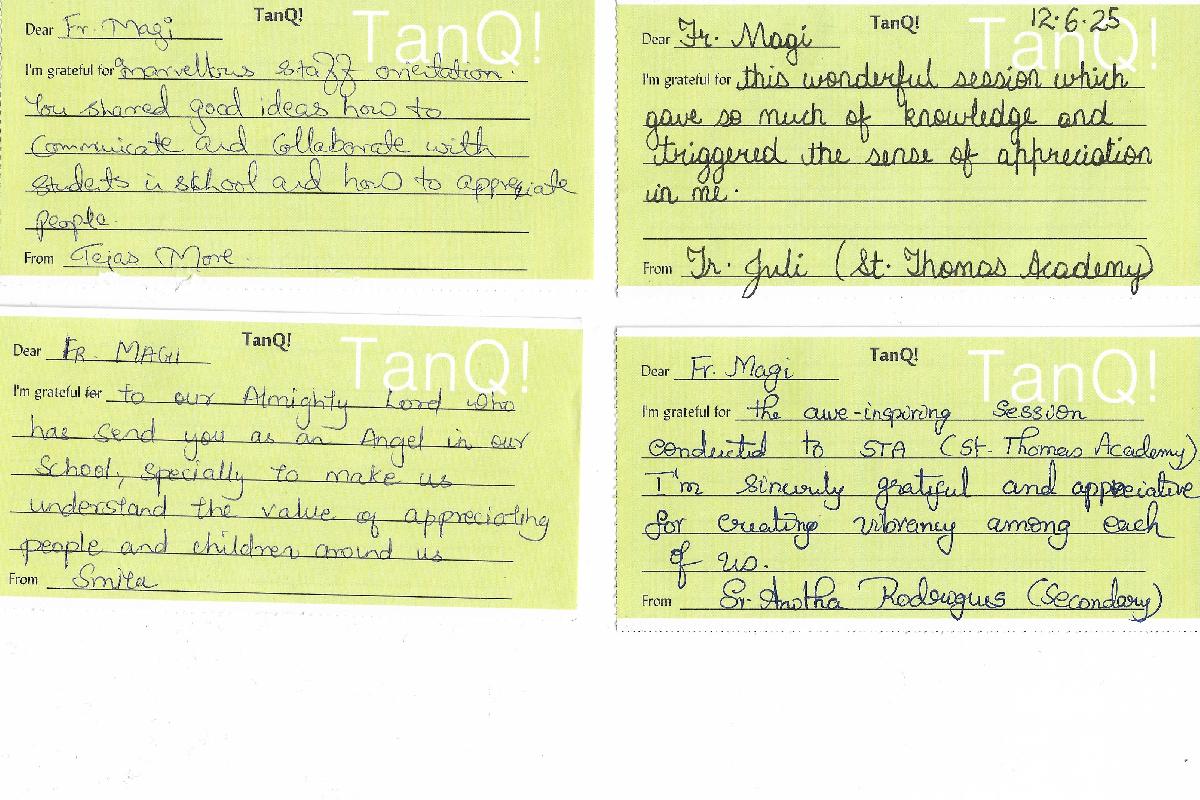 TanQ!
TanQ!
Dear Fr. Magi
I'm grateful for a marvellous staff orientation.
You shared good ideas how to
Communicate and Collaborate with
students in school and how to appreciate
people.
From Tejas More.
TanQ!
TanQ!
12.6.25
Dear Fr. Magi
I'm grateful for this wonderful session which
gave so much of knowledge and
triggered the sense of appreciation
in me.
From Tr. Juli (St. Thomas Academy)
TanQ!
TanQ!
Dear FR. MAGI
I'm grateful for to our Almighty Lord who
has send you as an Angel in our
School, specially to make us
understand the value of appreciating
people and children around us
From Smita
TanQ!
TanQ!
Dear Fr. Magi
I'm grateful for the awe-inspiring session
conducted to STA (St. Thomas Academy)
I'm sincerely grateful and appreciative
for creating vibrancy among each
of us.
From Sr. Rodrigues (Secondary)